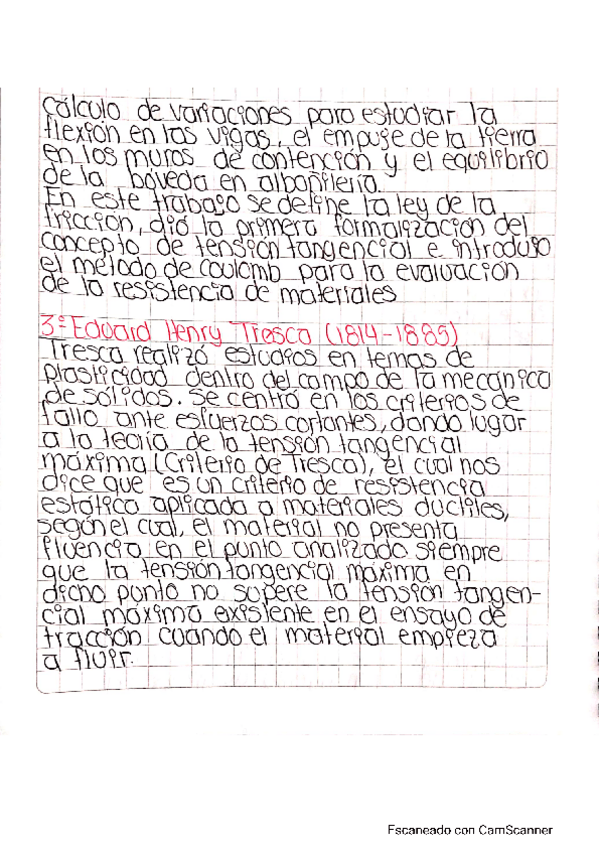 cálculo de variaciones para estudiar la
flexión en las vigas, el empuje de la tierra
en los muros de contención y el equilibrio
de la bóveda en albañilería.
En este trabajo se define la ley de la
fricción, dió la primera formalización del
concepto de tensión tangencial e introdujo
el método de coulomb para la evaluación
de la resistencia de materiales
3° Edward Henry Tresca (1814-1885)
Tresca realizó estudios en temas de
plasticidad dentro del campo de la mecánica
de sólidos. Se centró en los criterios de
fallo ante esfuerzos cortantes, dando lugar
a la teoría de la tensión tangencial
máxima (Criterio de Tresca), el cual nos
dice que es un criterio de resistencia
estática aplicada a materiales dúctiles,
según el cual, el material no presenta
fluencia en el punto analizado siempre
que la tensión tangencial máxima en
dicho punto no supere la tensión tangen-
cial máxima existente en el ensayo de
tracción cuando el material empieza
a fluir.
Escaneado con CamScanner